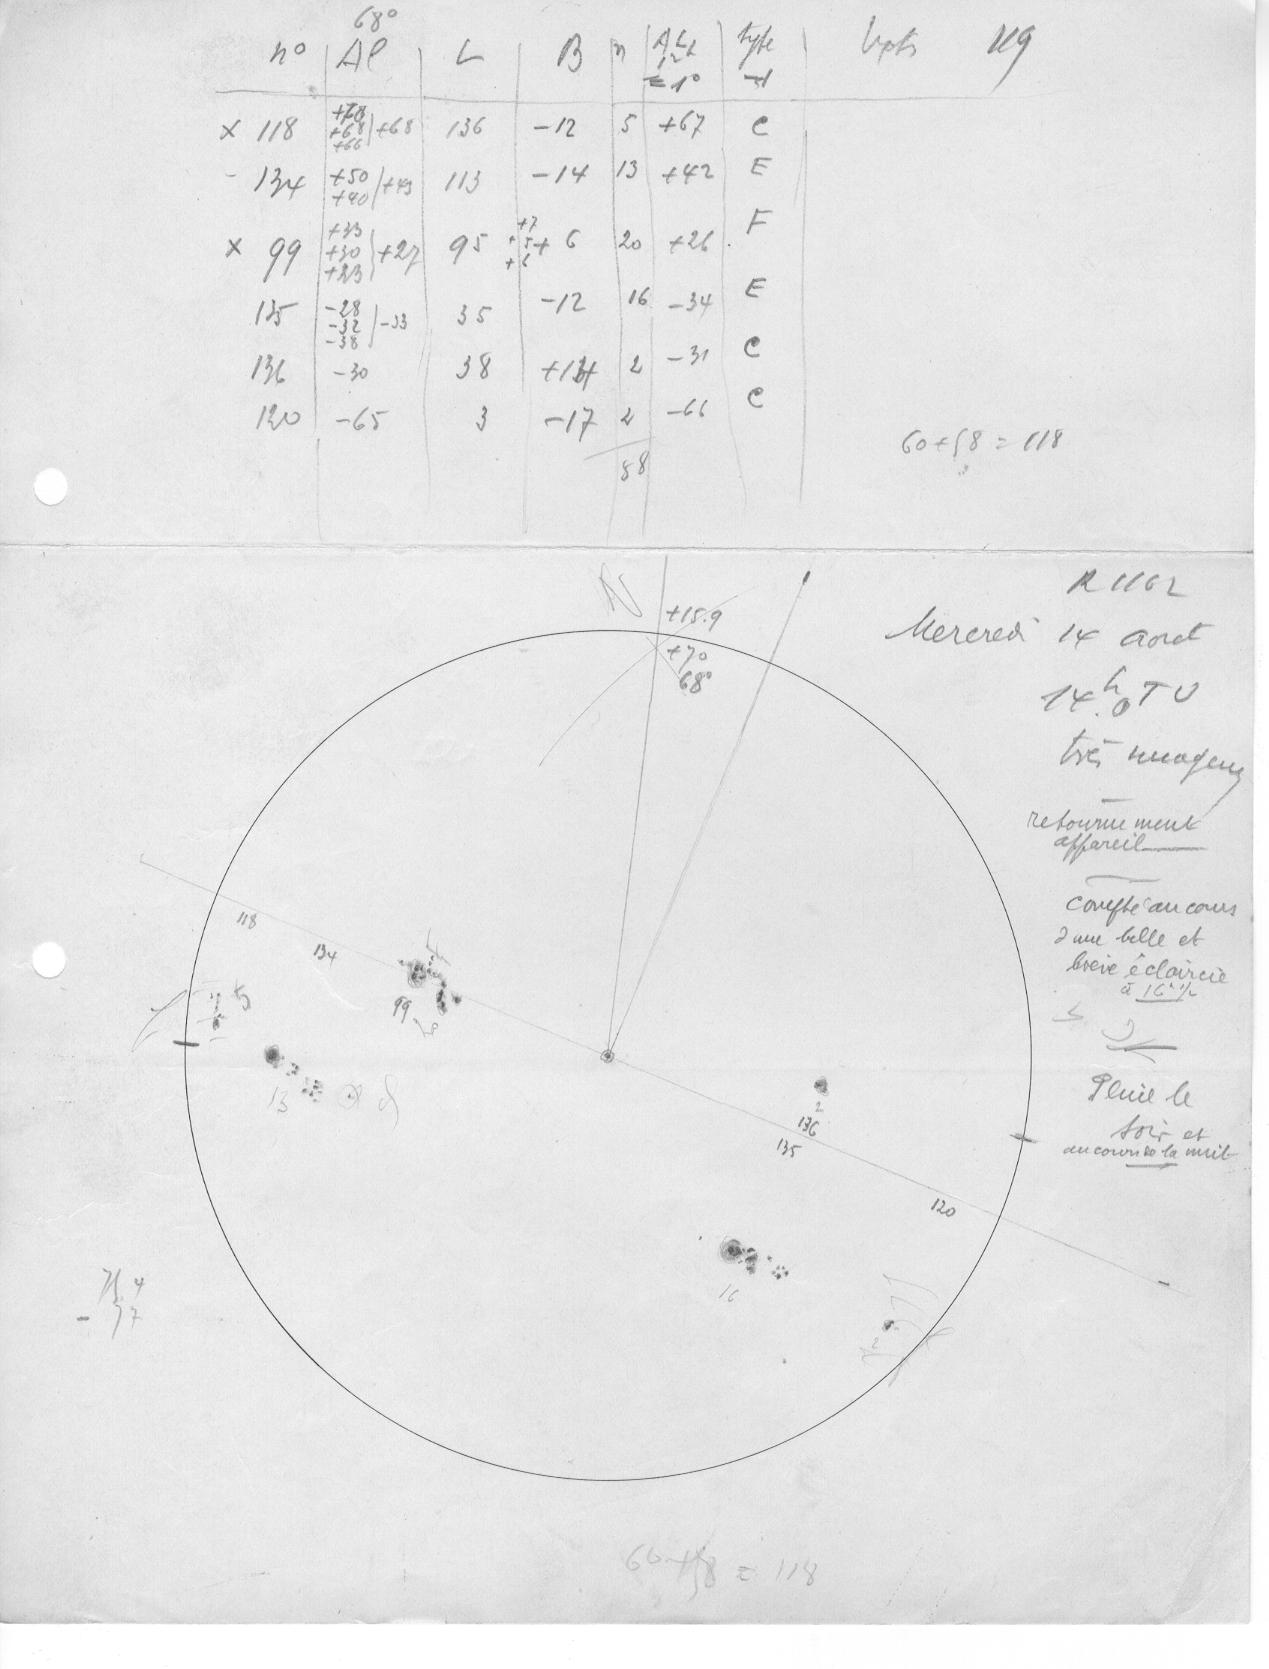 68°
n° Al L B n type
x 118 +68 +68 +66 +68 136 -12 5 +67 C
- 134 +50 +40 +49 113 -14 13 +42 E
x 99 +33 +30 +23 +27 95 +7 +5 +6 +6 20 +26 F
135 -28 -32 -38 -33 35 -12 16 -34 E
136 -30 38 2 -31 C
120 -65 3 -17 2 -66 C
58
60+58=118
R 1162
N
+15.9
Mercredi 14 août
+70
68°
14h.0 TU
très nuageux
retournement
appareil
compté au cours
d'une belle et
brève éclaircie
à 16h ½
118
134
5
99
13
2
136
135
Pluie le
soir et
au cours de la nuit
120
16
2
60+58=118